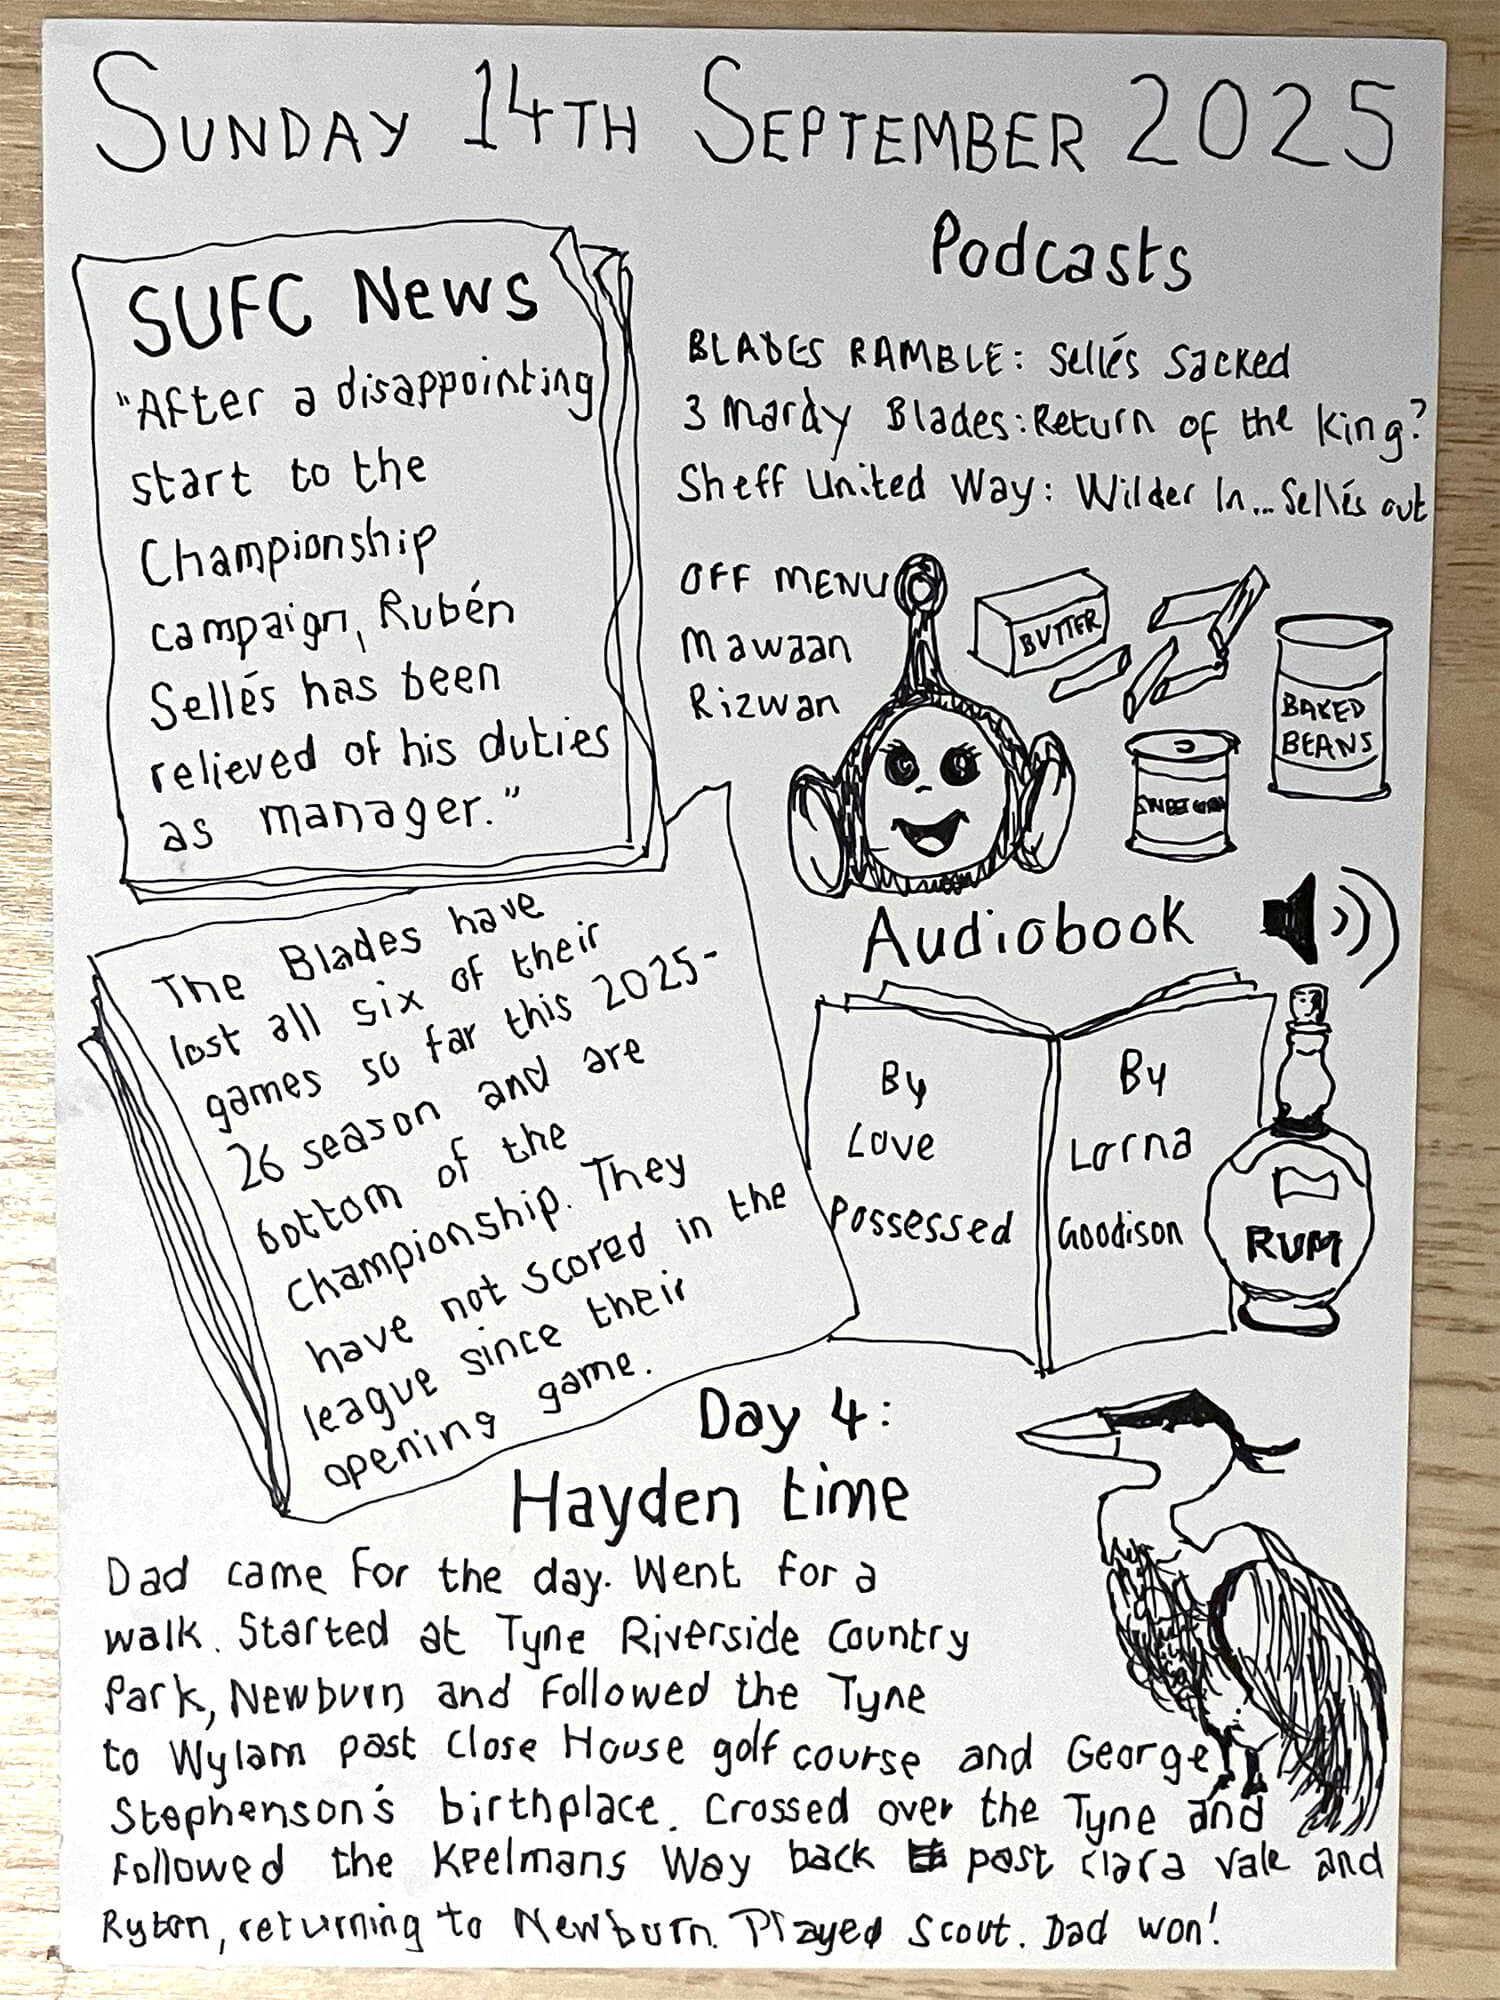 SUNDAY 14TH SEPTEMBER 2025
SUFC News
"After a disappointing
start to the
Championship
campaign, Rubén
Sellés has been
relieved of his duties
as manager."
The Blades have
lost all six of their
games so far this 2025-
26 season and are
bottom of the
Championship. They
have not scored in the
league since their
opening game.
Podcasts
BLADES RAMBLE: Sellés Sacked
3 Mardy Blades: Return of the King?
Sheff United Way: Wilder In... Sellés out
OFF MENU
Mawaan
Rizwan
BUTTER
BAKED
BEANS
SWEETCORN
Audiobook
By
Love
Possessed
By
Lorna
Goodison
RUM
Day 4:
Hayden time
Dad came for the day. Went for a
walk. Started at Tyne Riverside Country
Park, Newburn and followed the Tyne
to Wylam past Close House golf course and George
Stephenson's birthplace. Crossed over the Tyne and
followed the Keelmans Way back past Clara Vale and
Ryton, returning to Newburn. Played Scout. Dad won!